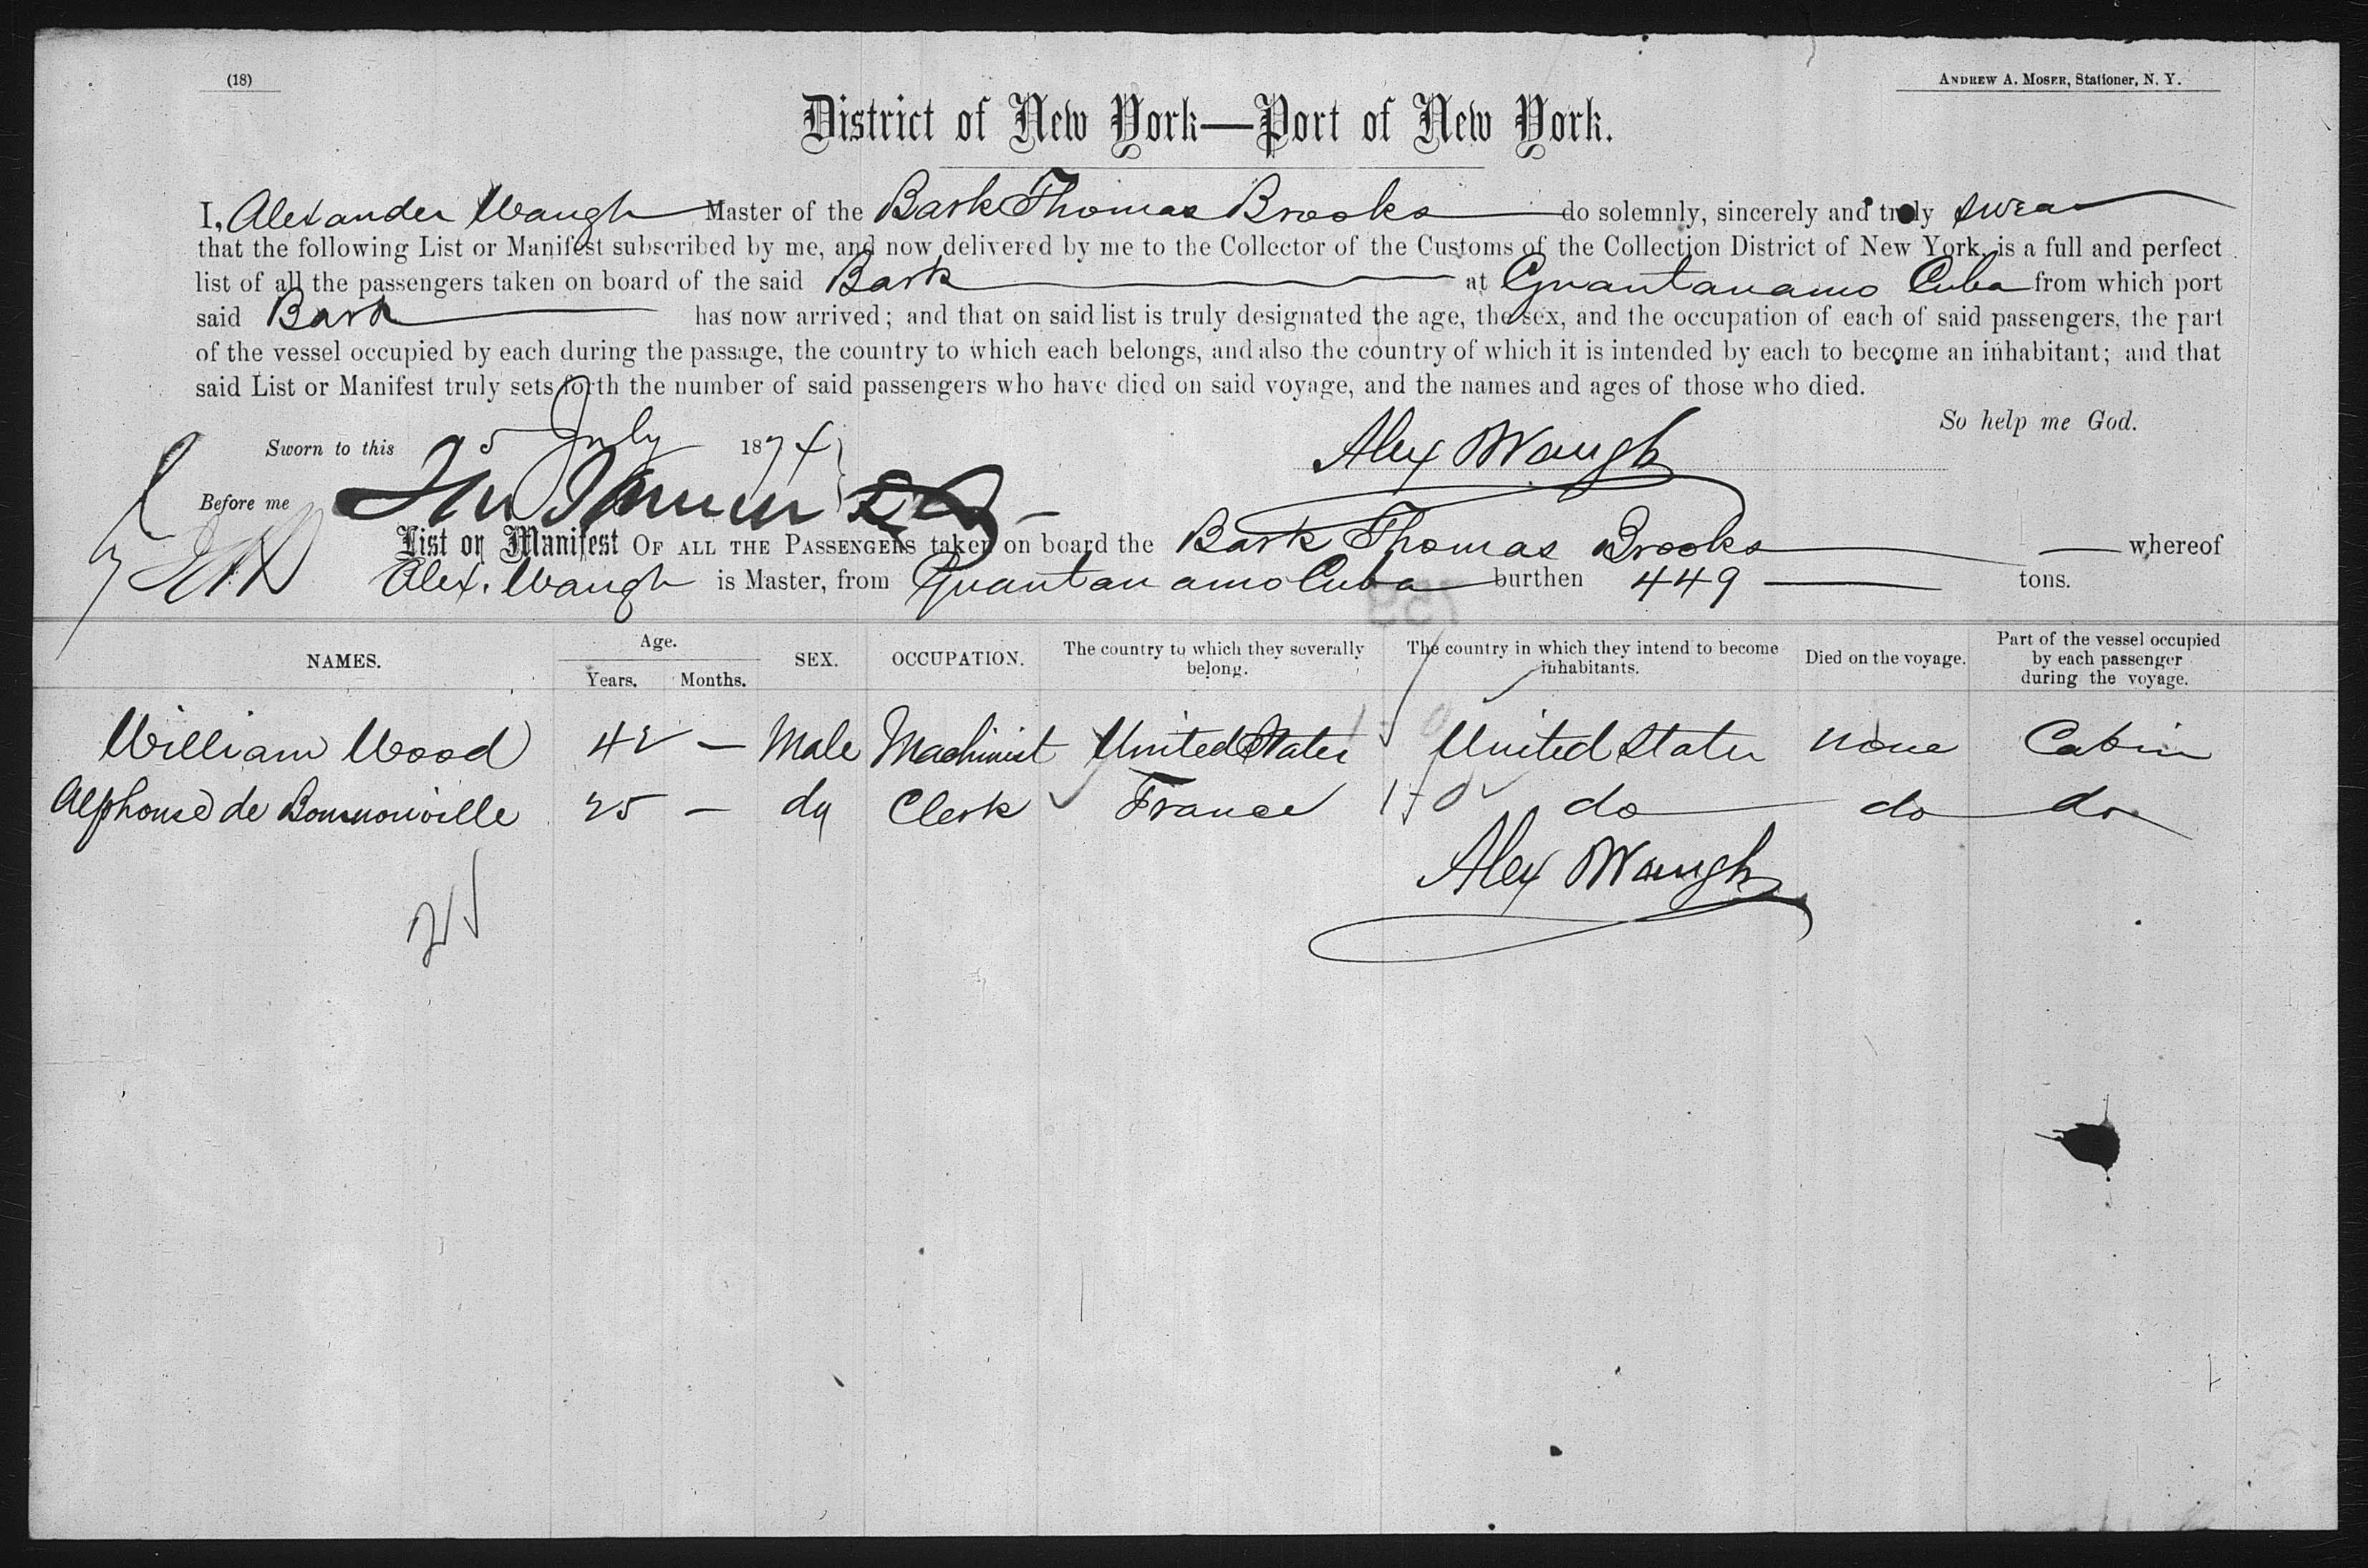 (18)
ANDREW A. MOSER, Stationer, N. Y.
District of New York—Port of New York.
I, Alexander Waugh Master of the Bark Thomas Brooks do solemnly, sincerely and truly swear
that the following List or Manifest subscribed by me, and now delivered by me to the Collector of the Customs of the Collection District of New York, is a full and perfect
list of all the passengers taken on board of the said Bark at Guantanamo Cuba from which port
said Bark has now arrived; and that on said list is truly designated the age, the sex, and the occupation of each of said passengers, the part
of the vessel occupied by each during the passage, the country to which each belongs, and also the country of which it is intended by each to become an inhabitant; and that
said List or Manifest truly sets forth the number of said passengers who have died on said voyage, and the names and ages of those who died.
So help me God.
Sworn to this July 1874 Alex Waugh
Before me
List or Manifest OF ALL THE PASSENGERS taken on board the Bark Thomas Brooks whereof
Alex. Waugh is Master, from Guantanamo Cuba burthen 449 tons.
NAMES. Age. Years. Months. SEX. OCCUPATION. The country to which they severally belong. The country in which they intend to become inhabitants. Died on the voyage. Part of the vessel occupied by each passenger during the voyage.
William Wood 42 — Male Machinist United States United States none Cabin
Alphonse de 25 — do Clerk France do do do
Alex Waugh